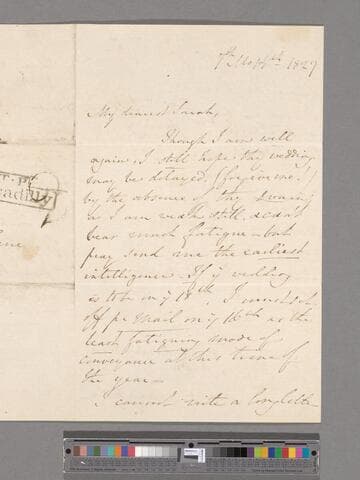 1827
My dearest Sarah,
Though I am well
again, I still hope the wedding
may be delayed, (forgive me)
by the absence of the
as I am weak still &
bear much fatigue — but
pray send me the earliest
intelligence. If ye wedding
is to be on ye 18th, I must set
off pr Mail on ye 16th as the
least fatiguing mode of
conveyance at this time of
the year —
I cannot write a long letter